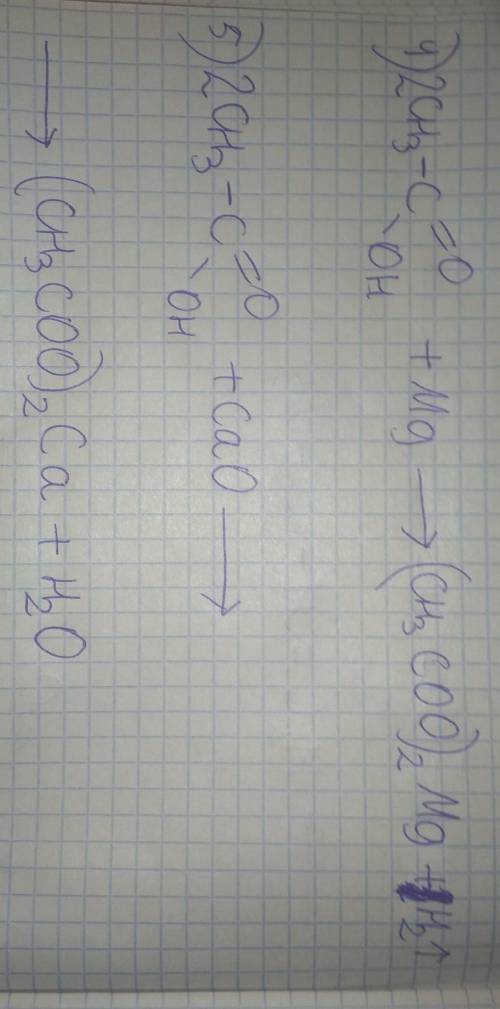 4) 2CH₃-C=O + Mg → (CH₃COO)₂Mg + H₂↑
\OH
5) 2CH₃-C=O + CaO →
\OH
→ (CH₃COO)₂Ca + H₂O